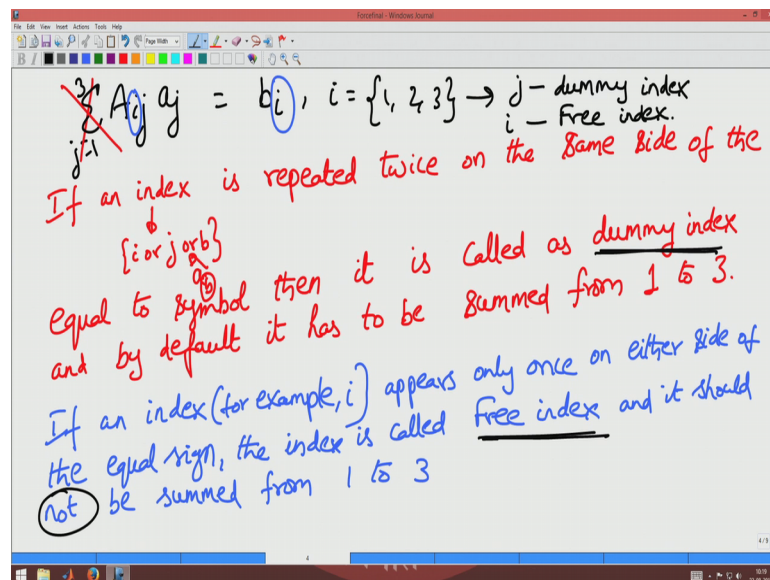 Forcefinal - Windows Journal
File Edit View Insert Actions Tools Help
Page Width
B I
3 Σ j=1 Aij aj = bi, i = {1, 2, 3} → j – dummy index
i – Free index.
If an index is repeated twice on the same side of the
{i or j or b}
ab
equal to symbol then it is called as dummy index
and by default it has to be summed from 1 to 3.
If an index (for example, i) appears only once on either side of
the equal sign, the index is called Free index and it should
not be summed from 1 to 3
4/9
4
10:19